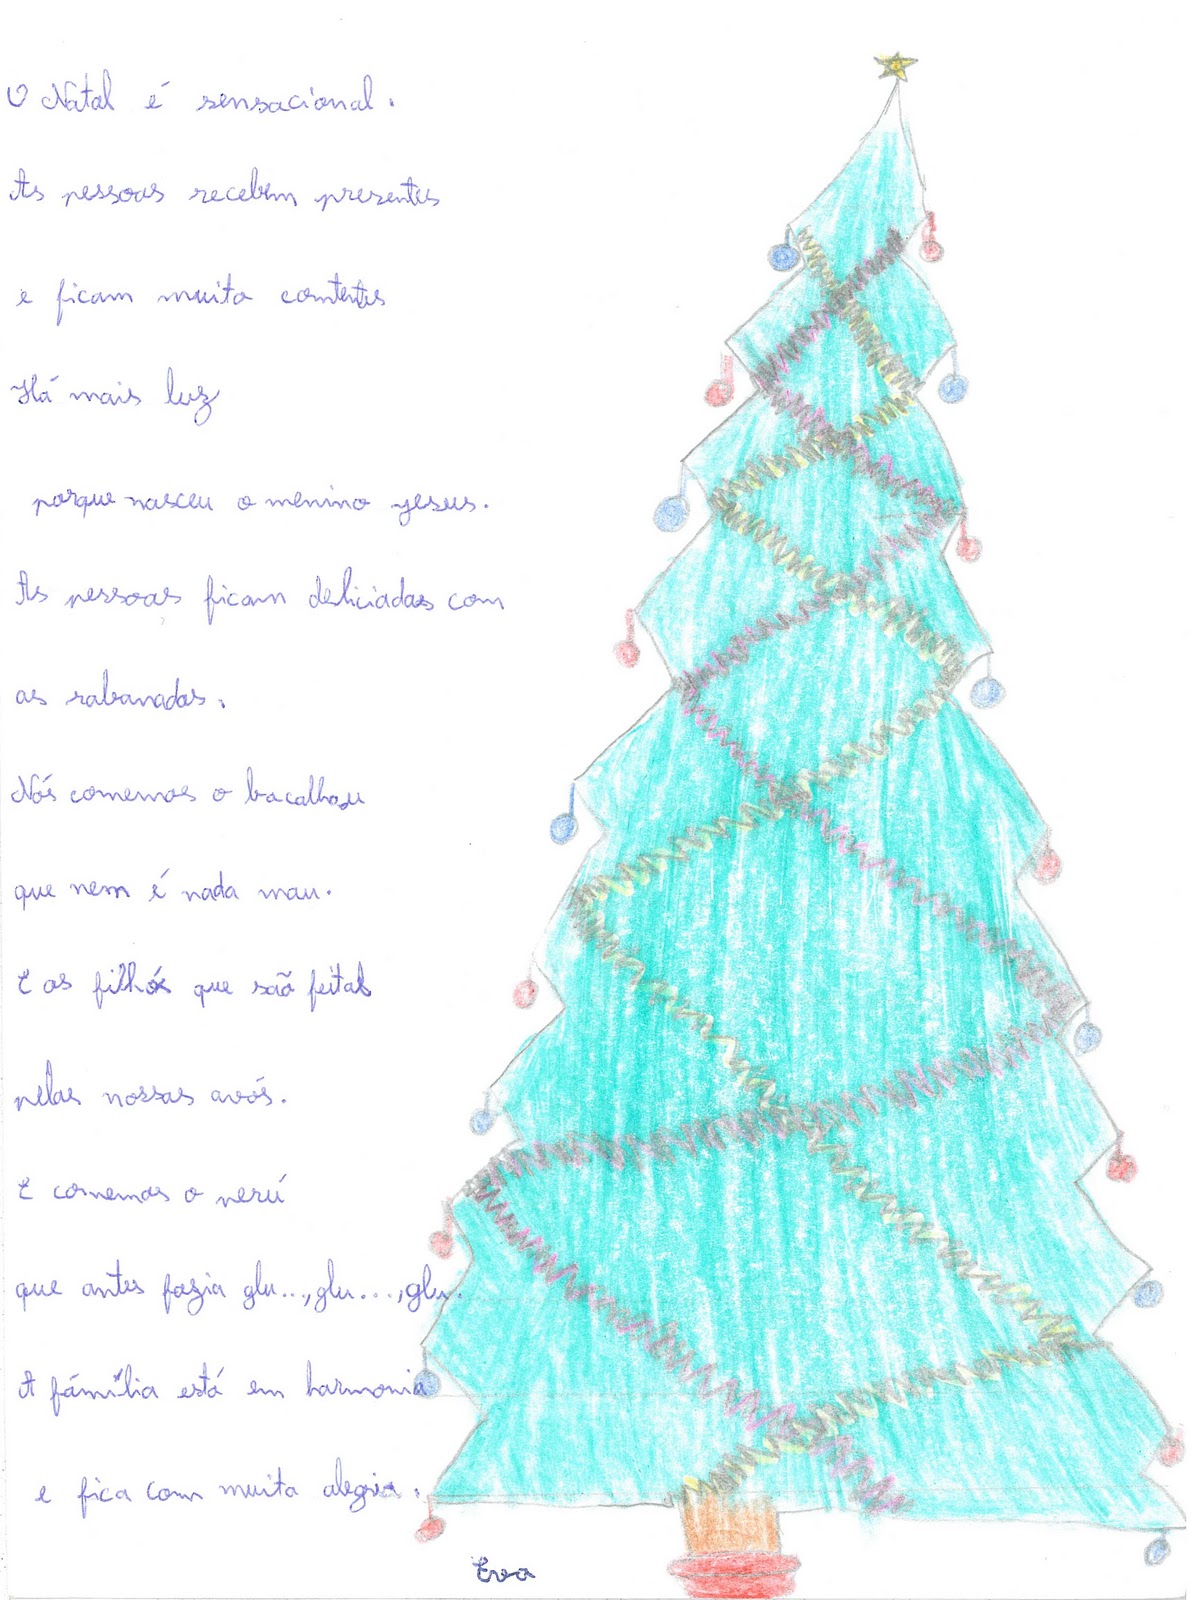 O Natal é sensacional.
As pessoas recebem presentes
e ficam muito contentes
Há mais luz
porque nasceu o menino jesus.
As pessoas ficam deliciadas com
as rabanadas.
Nós comemos o bacalhau
que nem é nada mau.
E as filhós que são feitas
pelas nossas avós.
E comemos o perú
que antes fazia glu...,glu...,glu.
A fámília está em harmonia
e fica com muita alegria.
Eva